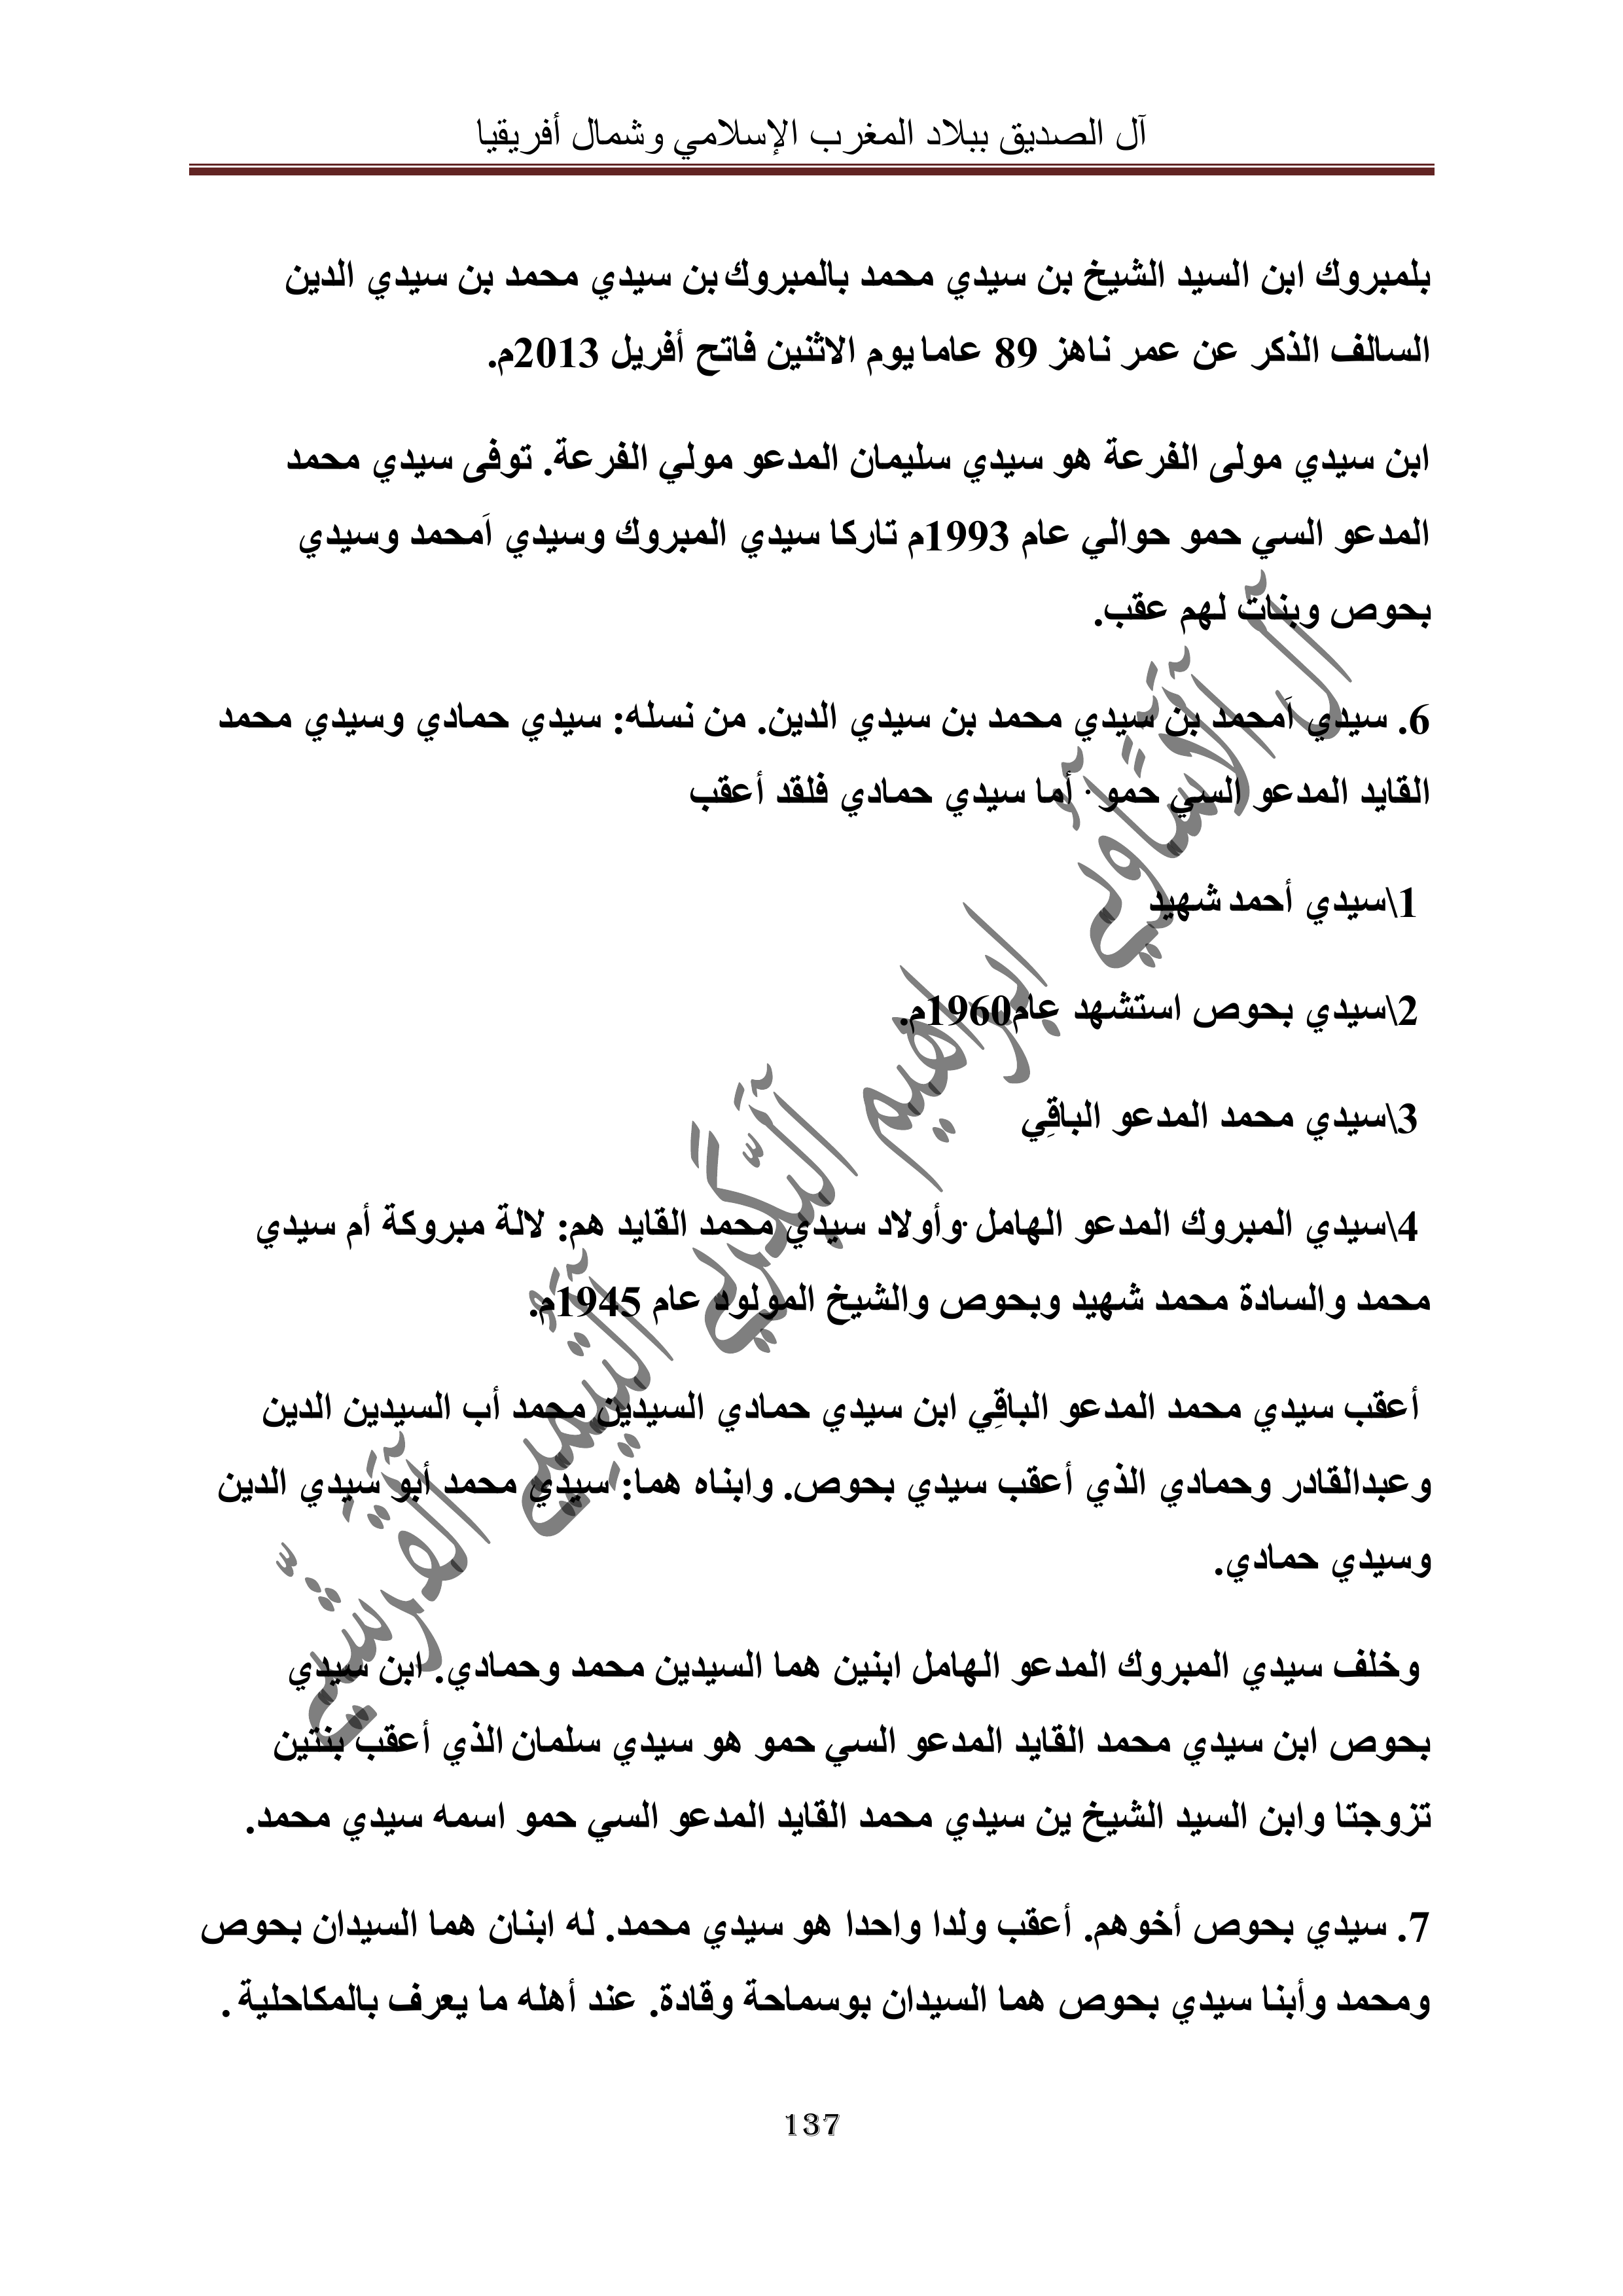 آل الصديق ببلاد المغرب الإسلامي وشمال أفريقيا
بلمبروك ابن السيد الشيخ بن سيدي محمد بالمبروك بن سيدي محمد بن سيدي الدين
السالف الذكر عن عمر ناهز 89 عاما يوم الاثنين فاتح أفريل 2013م.
ابن سيدي مولى الفرعة هو سيدي سليمان المدعو مولي الفرعة. توفى سيدي محمد
المدعو السي حمو حوالي عام 1993م تاركا سيدي المبروك وسيدي اَمحمد وسيدي
بحوص وبنات لهم عقب.
6. سيدي اَمحمد بن سيدي محمد بن سيدي الدين. من نسله: سيدي حمادي وسيدي محمد
القايد المدعو السي حمو. أما سيدي حمادي فلقد أعقب
1\سيدي أحمد شهيد
2\سيدي بحوص استشهد عام1960م.
3\سيدي محمد المدعو الباقِي
4\سيدي المبروك المدعو الهامل. وأولاد سيدي محمد القايد هم: لالة مبروكة أم سيدي
محمد والسادة محمد شهيد وبحوص والشيخ المولود عام 1945م.
أعقب سيدي محمد المدعو الباقِي ابن سيدي حمادي السيدين محمد أب السيدين الدين
وعبدالقادر وحمادي الذي أعقب سيدي بحوص. وابناه هما: سيدي محمد أبو سيدي الدين
وسيدي حمادي.
وخلف سيدي المبروك المدعو الهامل ابنين هما السيدين محمد وحمادي. ابن سيدي
بحوص ابن سيدي محمد القايد المدعو السي حمو هو سيدي سلمان الذي أعقب بنتين
تزوجتا وابن السيد الشيخ ين سيدي محمد القايد المدعو السي حمو اسمه سيدي محمد.
7. سيدي بحوص أخوهم. أعقب ولدا واحدا هو سيدي محمد. له ابنان هما السيدان بحوص
ومحمد وأبنا سيدي بحوص هما السيدان بوسماحة وقادة. عند أهله ما يعرف بالمكاحلية .
137